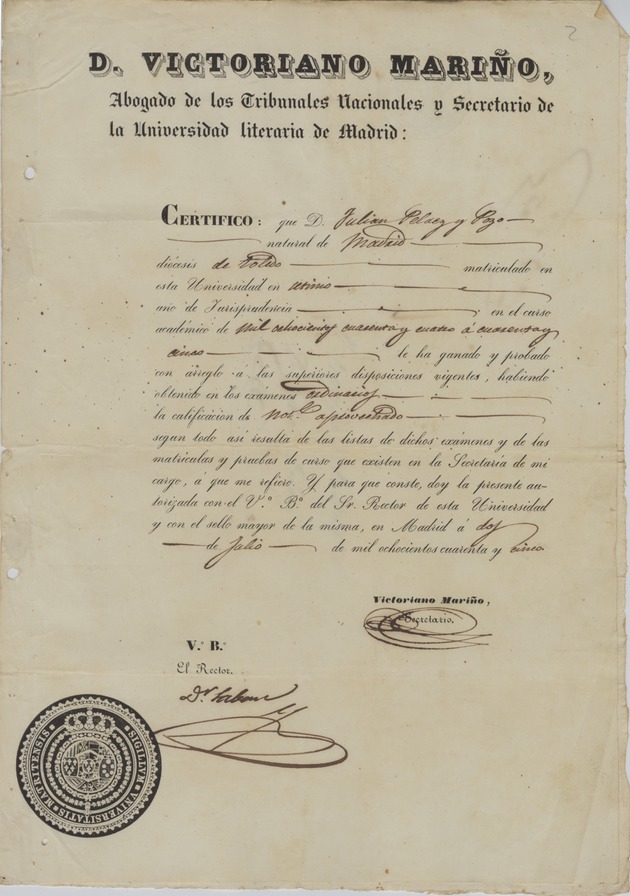 2
D. VICTORIANO MARIÑO,
Abogado de los Tribunales Nacionales y Secretario de
la Universidad literaria de Madrid:
CERTIFICO: que D. Julian Pelaez y Pozo
natural de Madrid
diócesis de Toledo matriculado en
esta Universidad en
año de Jurisprudencia en el curso
académico de mil ochocientos cuarenta y cuatro á cuarenta y
cinco le ha ganado y probado
con arreglo á las superiores disposiciones vigentes, habiendo
obtenido en los exámenes ordinarios
la calificacion de aprovechado
segun todo asi resulta de las listas de dichos exámenes y de las
matrículas y pruebas de curso que existen en la Secretaría de mi
cargo, á que me refiero. Y para que conste, doy la presente au-
torizada con el V.º B.º del Sr. Rector de esta Universidad
y con el sello mayor de la misma, en Madrid á dos
de Julio de mil ochocientos cuarenta y cinco.
Victoriano Mariño,
Secretario.
V.º B.º
El Rector.
SIGILLVM VNIVERSITATIS MATRITENSIS